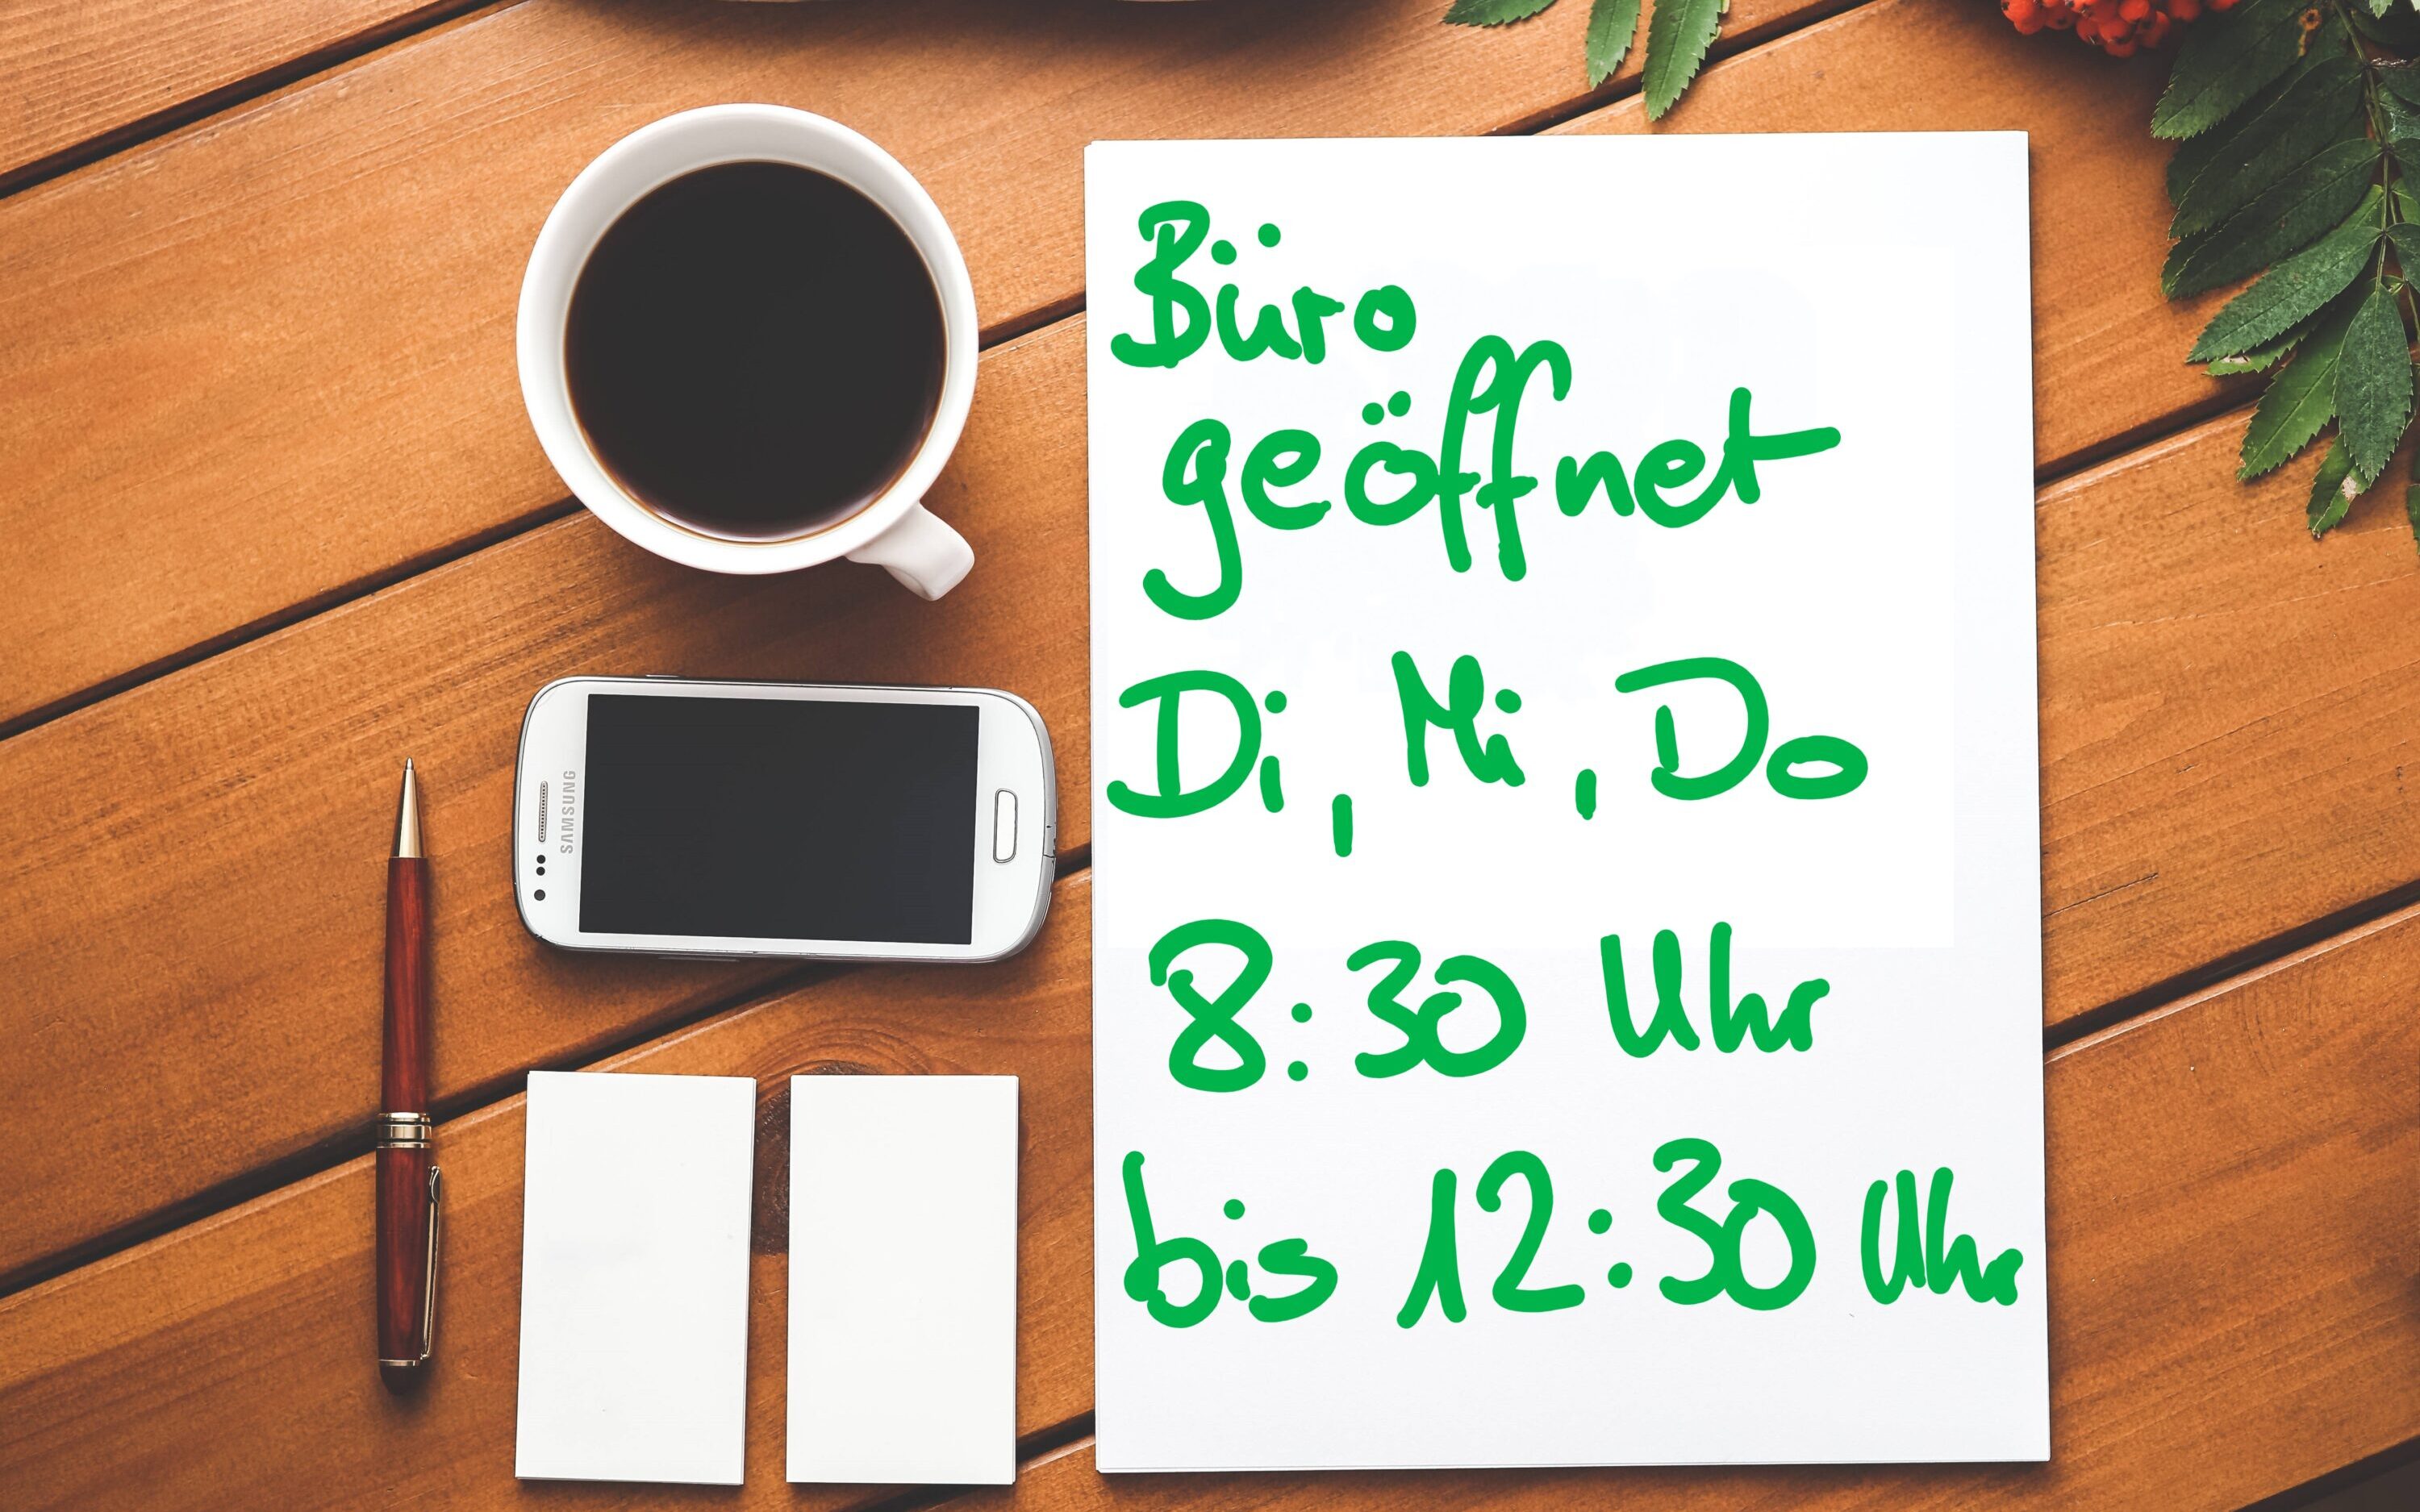 Büro
geöffnet
Di, Mi, Do
8:30 Uhr
bis 12:30 Uhr
SAMSUNG